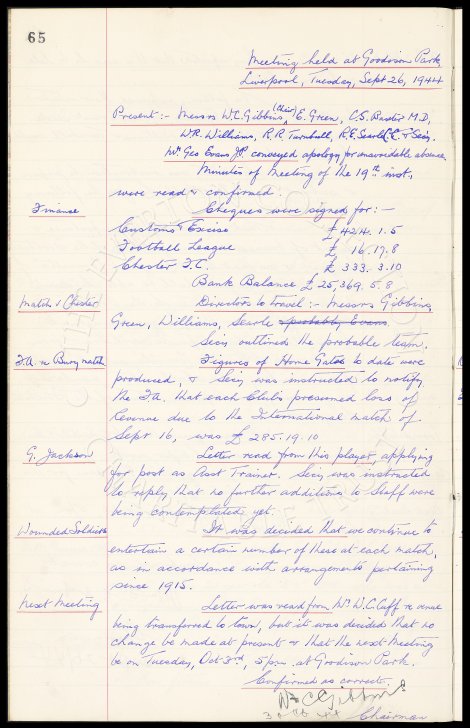 65
Meeting held at Goodison Park,
Liverpool, Tuesday, Sept 26, 1944
Present :- Messrs W.C. Gibbins (Chair) E. Green, C.S. Baxter M.D,
W.R. Williams, R.R. Turnbull, R.E. Searle, & Secy.
Mr. Geo Evans J.P. conveyed apology for unavoidable absence.
Minutes of Meeting of the 19th inst,
were read & confirmed.
Finance
Cheques were signed for: -
Customs & Excise £ 424. 1. 5
Football League £ 16. 17. 8
Chester F.C. £ 333. 3. 10
Bank Balance £ 25,369. 5. 8
Match v Chester
Directors to travel :- Messrs Gibbins,
Green, Williams, Searle & probably Evans.
Secy outlined the probable team.
F.A. re Bury match
Figures of Home Gates to date were
produced, & Secy was instructed to notify
the F.A. that each Club's presumed loss of
Revenue due to the International match of
Sept 16, was £ 285. 19. 10
G. Jackson
Letter read from this player, applying
for post as Asst Trainer. Secy was instructed
to reply that no further additions to Staff were
being contemplated yet.
Wounded Soldiers
It was decided that we continue to
entertain a certain number of these at each match,
as in accordance with arrangements pertaining
since 1915.
Next Meeting
Letter was read from Mr W.C. Cuff re venue
being transferred to town, but it was decided that no
change be made at present & that the next Meeting
be on Tuesday, Oct 3rd, 5pm. at Goodison Park.
Confirmed as correct.
W C Gibbins
Chairman